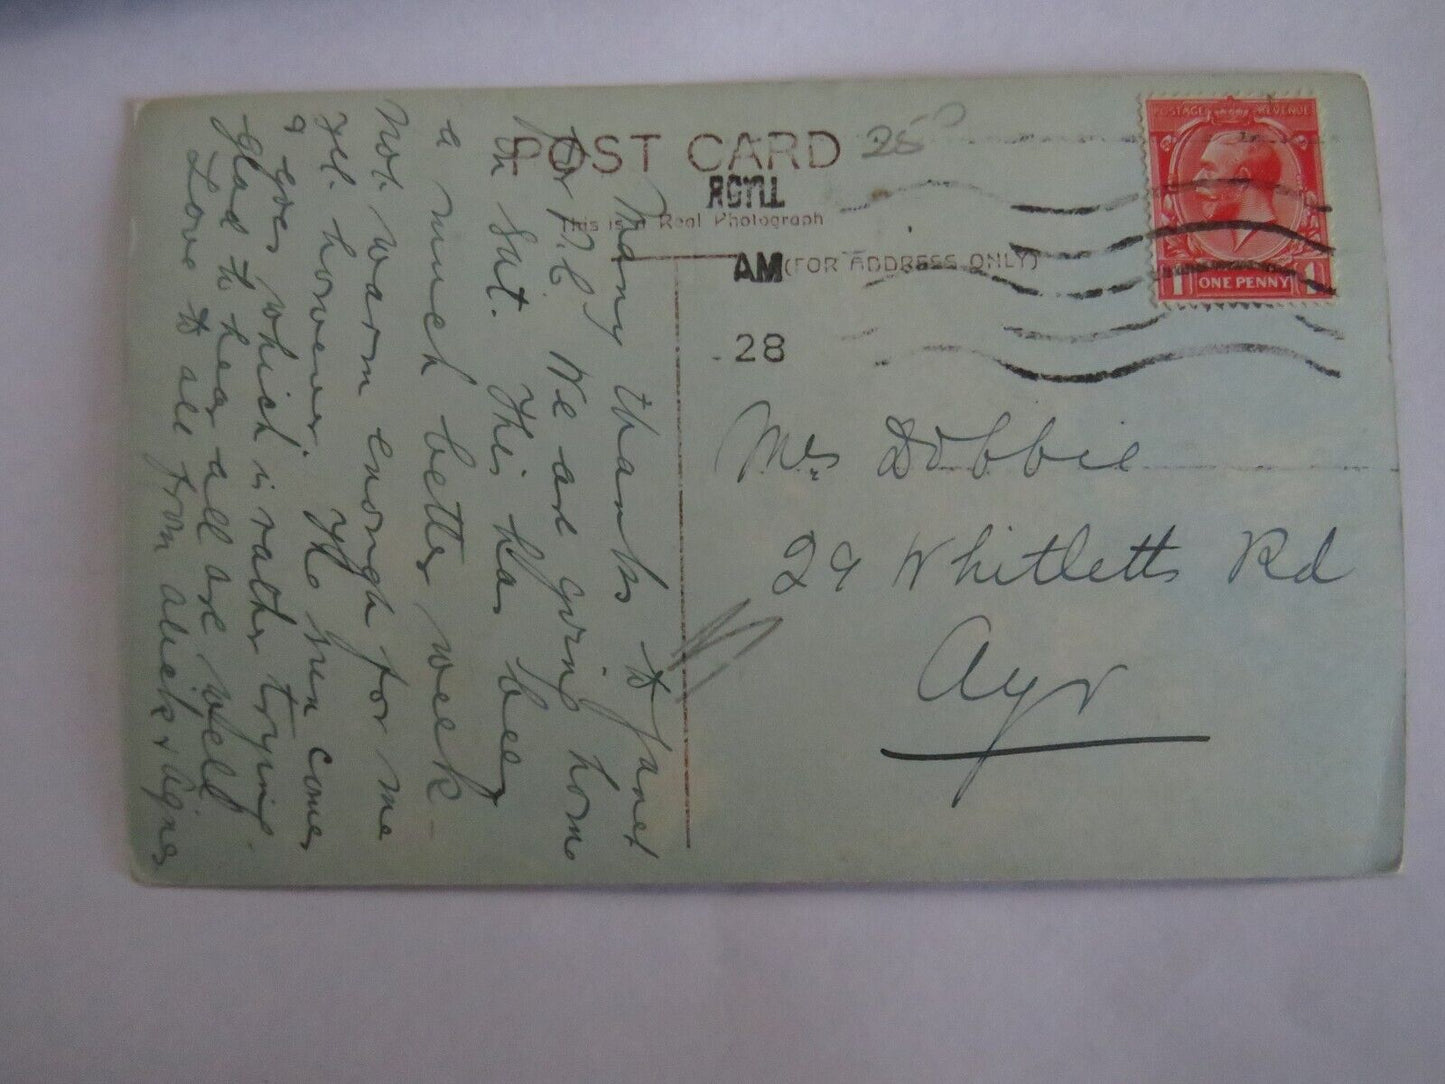 POST CARD
This is a Real Photograph
(FOR ADDRESS ONLY)
250
ARGYLL
AM
28
POSTAGE REVENUE
1 ONE PENNY 1
Many thanks to Janet
for P.C. We are going home
on Sat. This has been
a much better week –
Not warm enough for me
yet however. The sun comes
& goes which is rather trying.
Glad to hear all are well
Love to all from Alick & Agnes
Mrs Dobbie
29 Whitletts Rd
Ayr